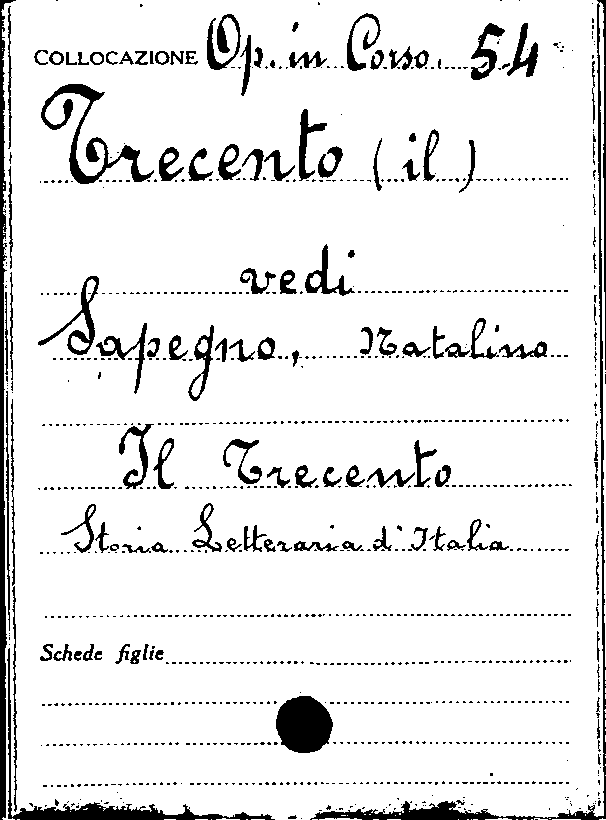 COLLOCAZIONE Op. in Corso. 54
Trecento (il)
vedi
Sapegno, Natalino
Il Trecento
Storia Letteraria d'Italia
Schede figlie